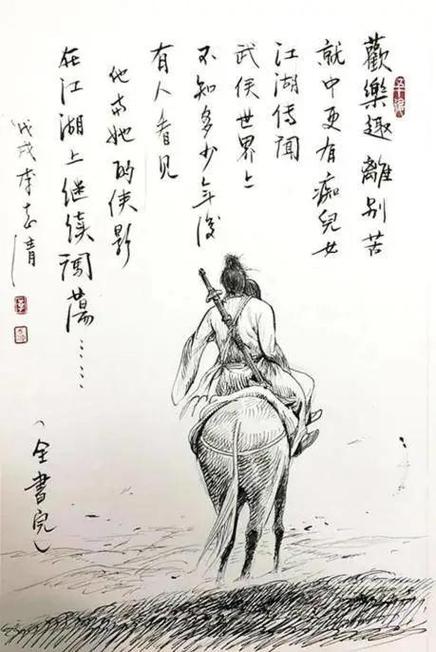 歡樂趣離别苦
就中更有痴兒女
江湖传闻
武侠世界上
不知多少年後
有人看見
他與她的侠影
在江湖上继续闯蕩……
戊戌李志清
（全書完）